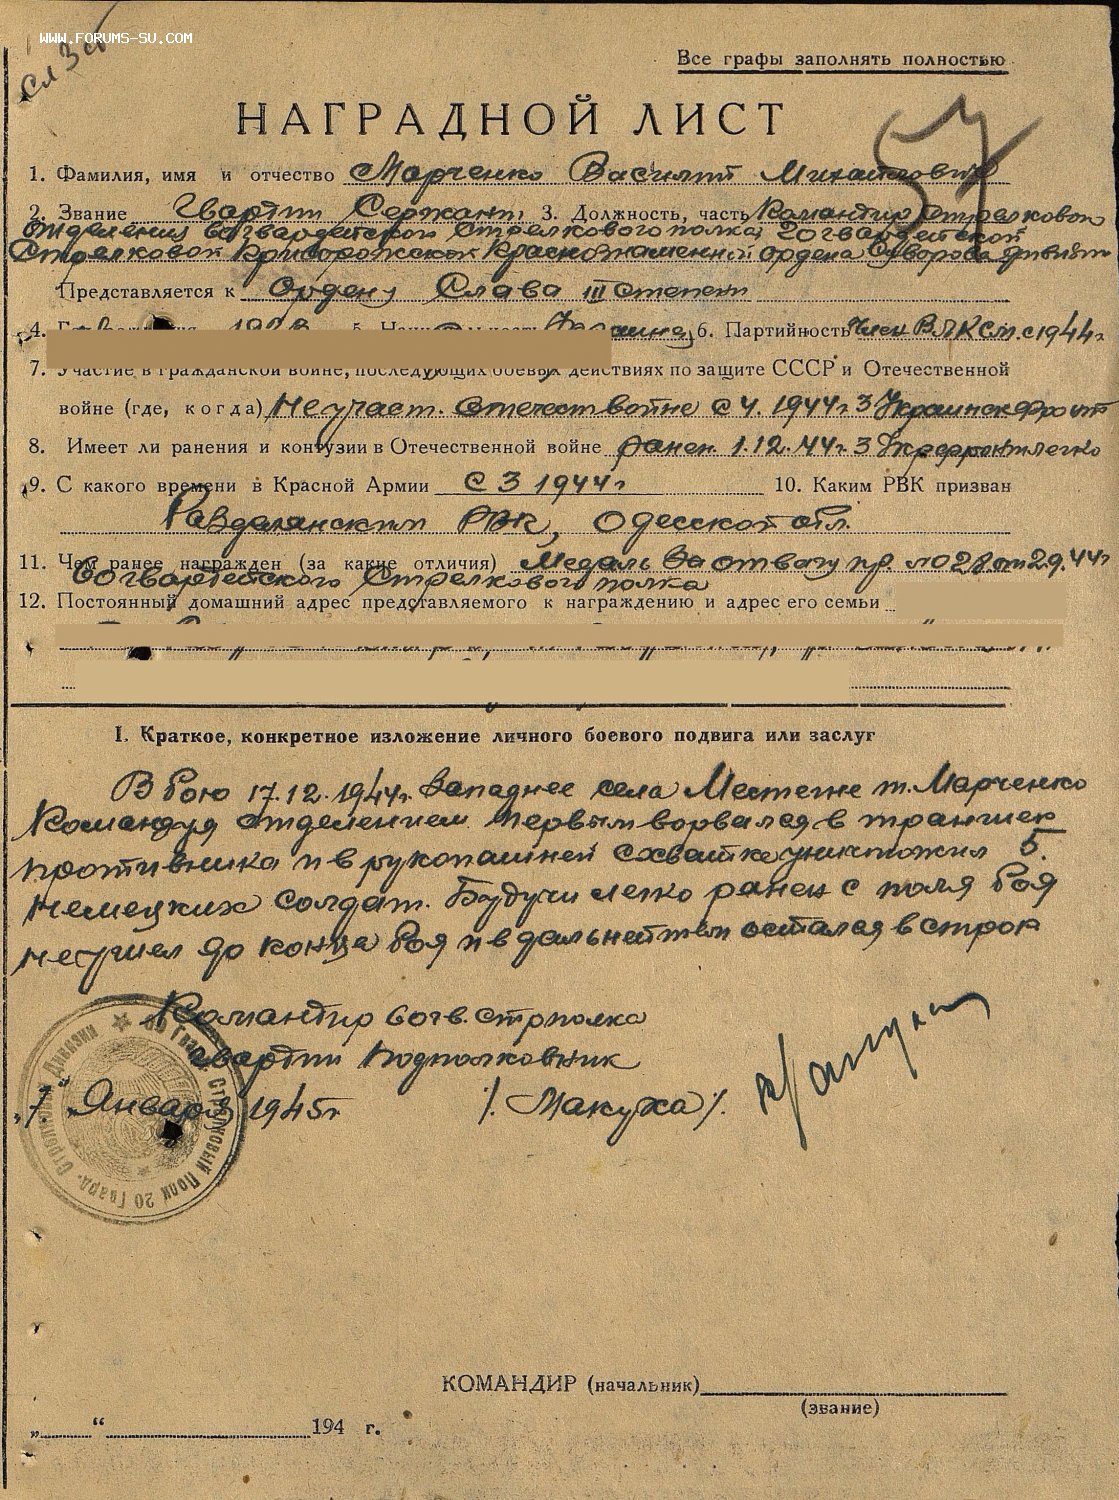 WWW.FORUMS-SU.COM
Сл 3 ст
Все графы заполнять полностью
НАГРАДНОЙ ЛИСТ
57
1. Фамилия, имя и отчество Марченко Василий Михайлович
2. Звание Гвардии Сержант, 3. Должность, часть Командир стрелкового
отделения 60 гвардейского стрелкового полка 20 гвардейской
Стрелковой Криворожской Краснознаменной ордена Суворова дивизии
Представляется к Ордену Слава III степени
4. 6. Партийность Член ВЛКСМ. с 1944 г
7. Участие в гражданской войне, последующих боевых действиях по защите СССР и Отечественной
войне (где, когда) Не участ. Отечест войне с 4. 1944 г. 3 Украинск фронт
8. Имеет ли ранения и контузии в Отечественной войне ранен 1.12.44 г. 3 Укр фронт легко
9. С какого времени в Красной Армии с 3 1944 г 10. Каким РВК призван
Раздалянским РВК, Одесской обл.
11. Чем ранее награжден (за какие отличия) Медаль За отвагу пр. №028 от 2.9.44 г
60 гвардейского Стрелкового полка
12. Постоянный домашний адрес представляемого к награждению и адрес его семьи
I. Краткое, конкретное изложение личного боевого подвига или заслуг
В бою 17.12.1944 г. Западнее села Местене т. Марченко
Командуя отделением первым ворвался в траншею
противника и в рукопашней схватке уничтожил 5.
немецких солдат. Будучи легко ранен с поля боя
не ушел до конца боя и в дальнейшем остался в строю
Командир 60 гв. стрполка
гвардии подполковник
"7." Января 1945 г /. Макуха /.
60 Гвард. Стрелковый Полк 20 Гвард. Стрелковой Дивизии
КОМАНДИР (начальник)
(звание)
„ “ 194 г.